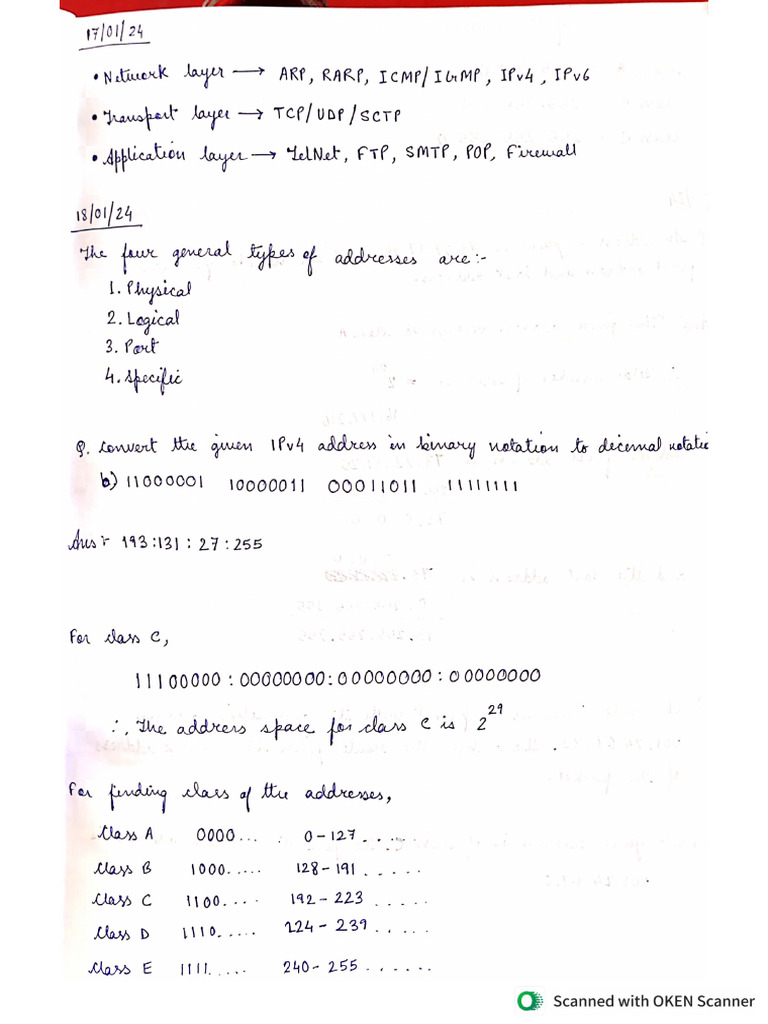 17/01/24
• Network layer → ARP, RARP, ICMP/IGMP, IPv4, IPv6
• Transport layer → TCP/UDP/SCTP
• Application layer → TelNet, FTP, SMTP, POP, Firewall
18/01/24
The four general types of addresses are:-
1. Physical
2. Logical
3. Port
4. Specific
Q. Convert the given IPv4 address in binary notation to decimal notatio
b) 11000001 10000011 00011011 11111111
Ans:- 193:131:27:255
For class C,
11100000:00000000:00000000:00000000
∴ The address space for class C is 2^29
For finding class of the addresses,
Class A 0000... 0-127.....
Class B 1000..... 128-191.....
Class C 1100.... 192-223.....
Class D 1110..... 224-239.....
Class E 1111..... 240-255......
Scanned with OKEN Scanner